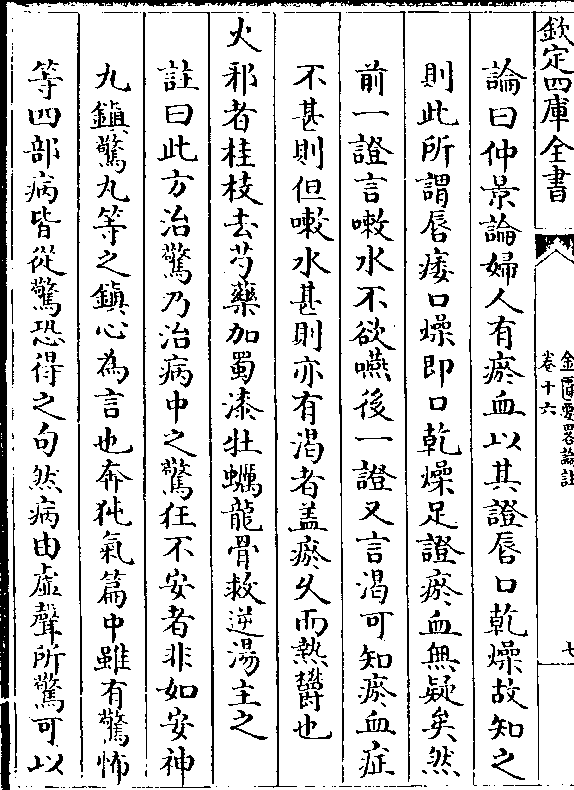 欽定四庫全書
金匱要畧論註
卷十六
七
論曰仲景論婦人有瘀血以其證唇口乾燥故知之
則此所謂唇痿口燥即口乾燥足證瘀血無疑矣然
前一證言嗽水不欲嚥後一證又言渴可知瘀血症
不甚則但嗽水甚則亦有渴者盖瘀久而熱鬱也
火邪者桂枝去芍藥加蜀漆牡蠣龍骨救逆湯主之
註曰此方治驚乃治病中之驚狂不安者非如安神
丸鎮驚丸等之鎮心為言也奔㹠氣篇中雖有驚怖
等四部病皆從驚恐得之句然病由虛聲所驚可以